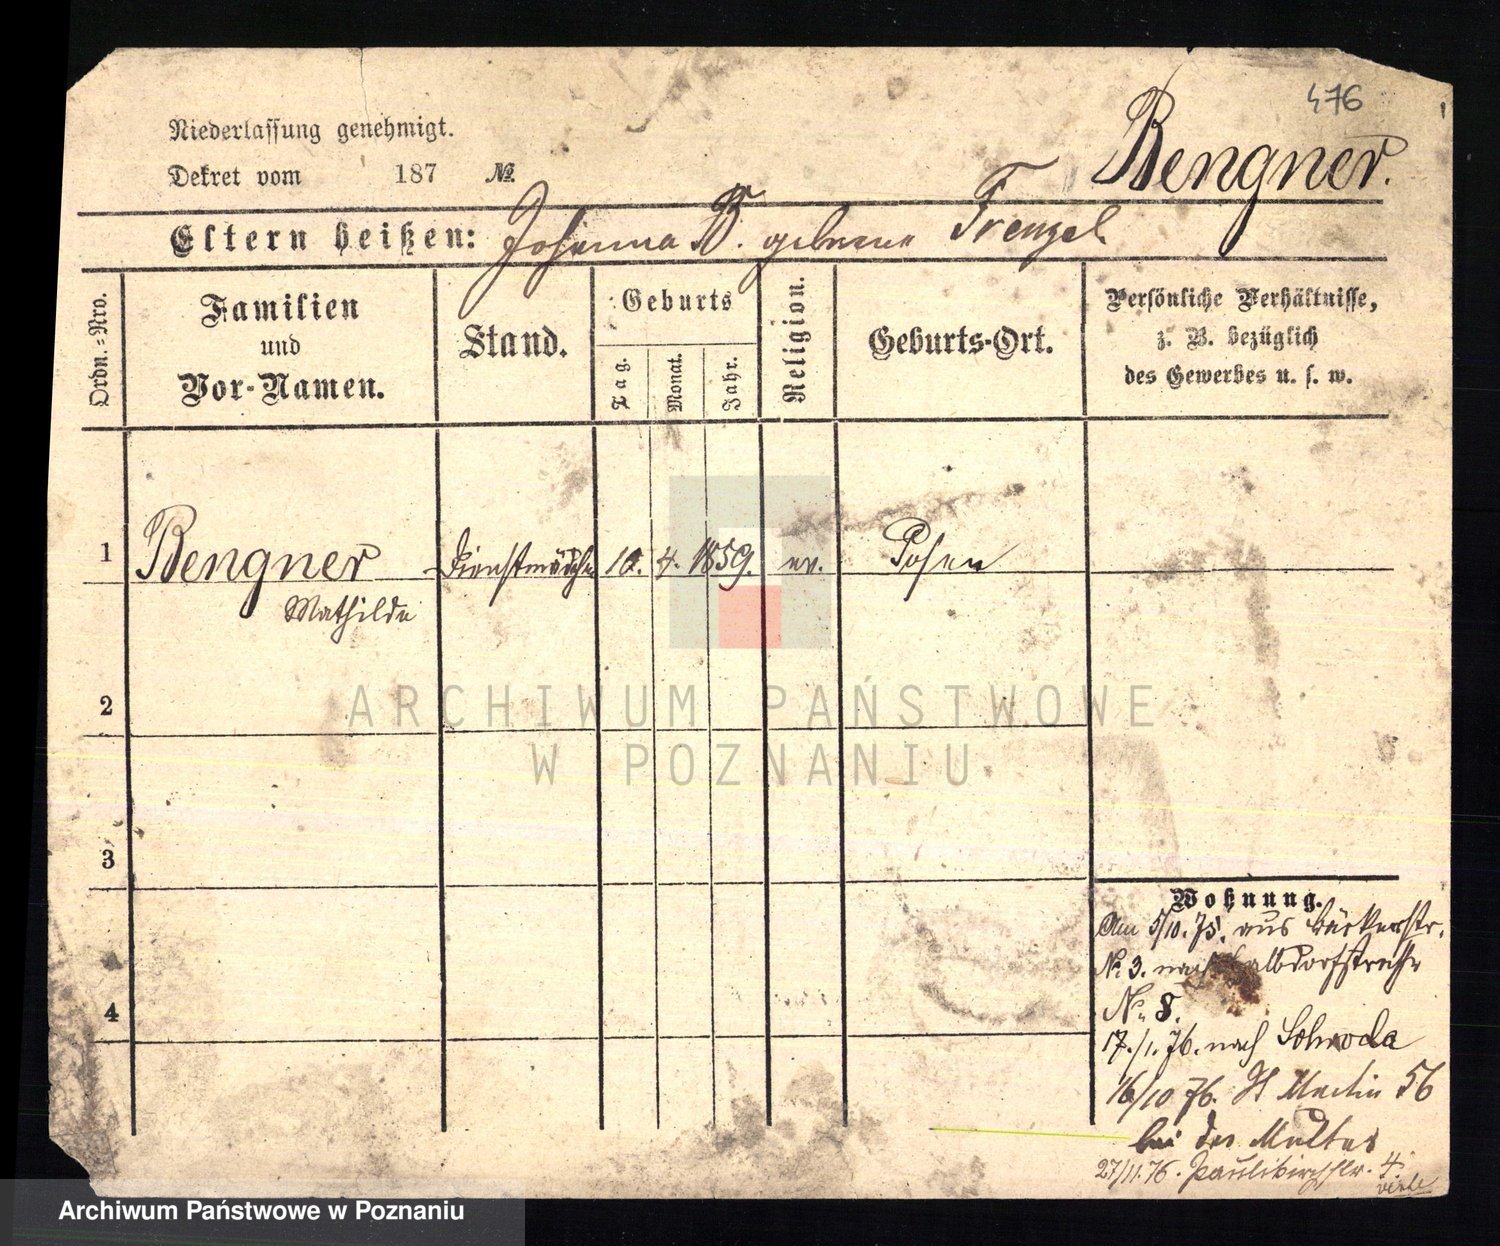 476
Niederlassung genehmigt.
Bengner.
Dekret vom 187 №.
Eltern heißen: Johanna B. geborene Frenzel
Ordn.-Nro.
Familien und Vor-Namen.
Stand.
Geburts
Tag.
Monat.
Jahr.
Religion.
Geburts-Ort.
Persönliche Verhältnisse,
z. B. bezüglich
des Gewerbes u. s. w.
1 Bengner Dienstmädchen 10. 4. 1859. ev. Posen
Mathilde
2
3
4
ARCHIWUM PAŃSTWOWE
W POZNANIU
Wohnung.
Am 5/10. 75. aus Bäckerstr.
№ 3. nach Halbdorfstraße
№ 8.
17./1. 76. nach
16/10 76. St Martin 56
bei der Mutter
27/11. 76. Paulikirchstr. 4.
Archiwum Państwowe w Poznaniu